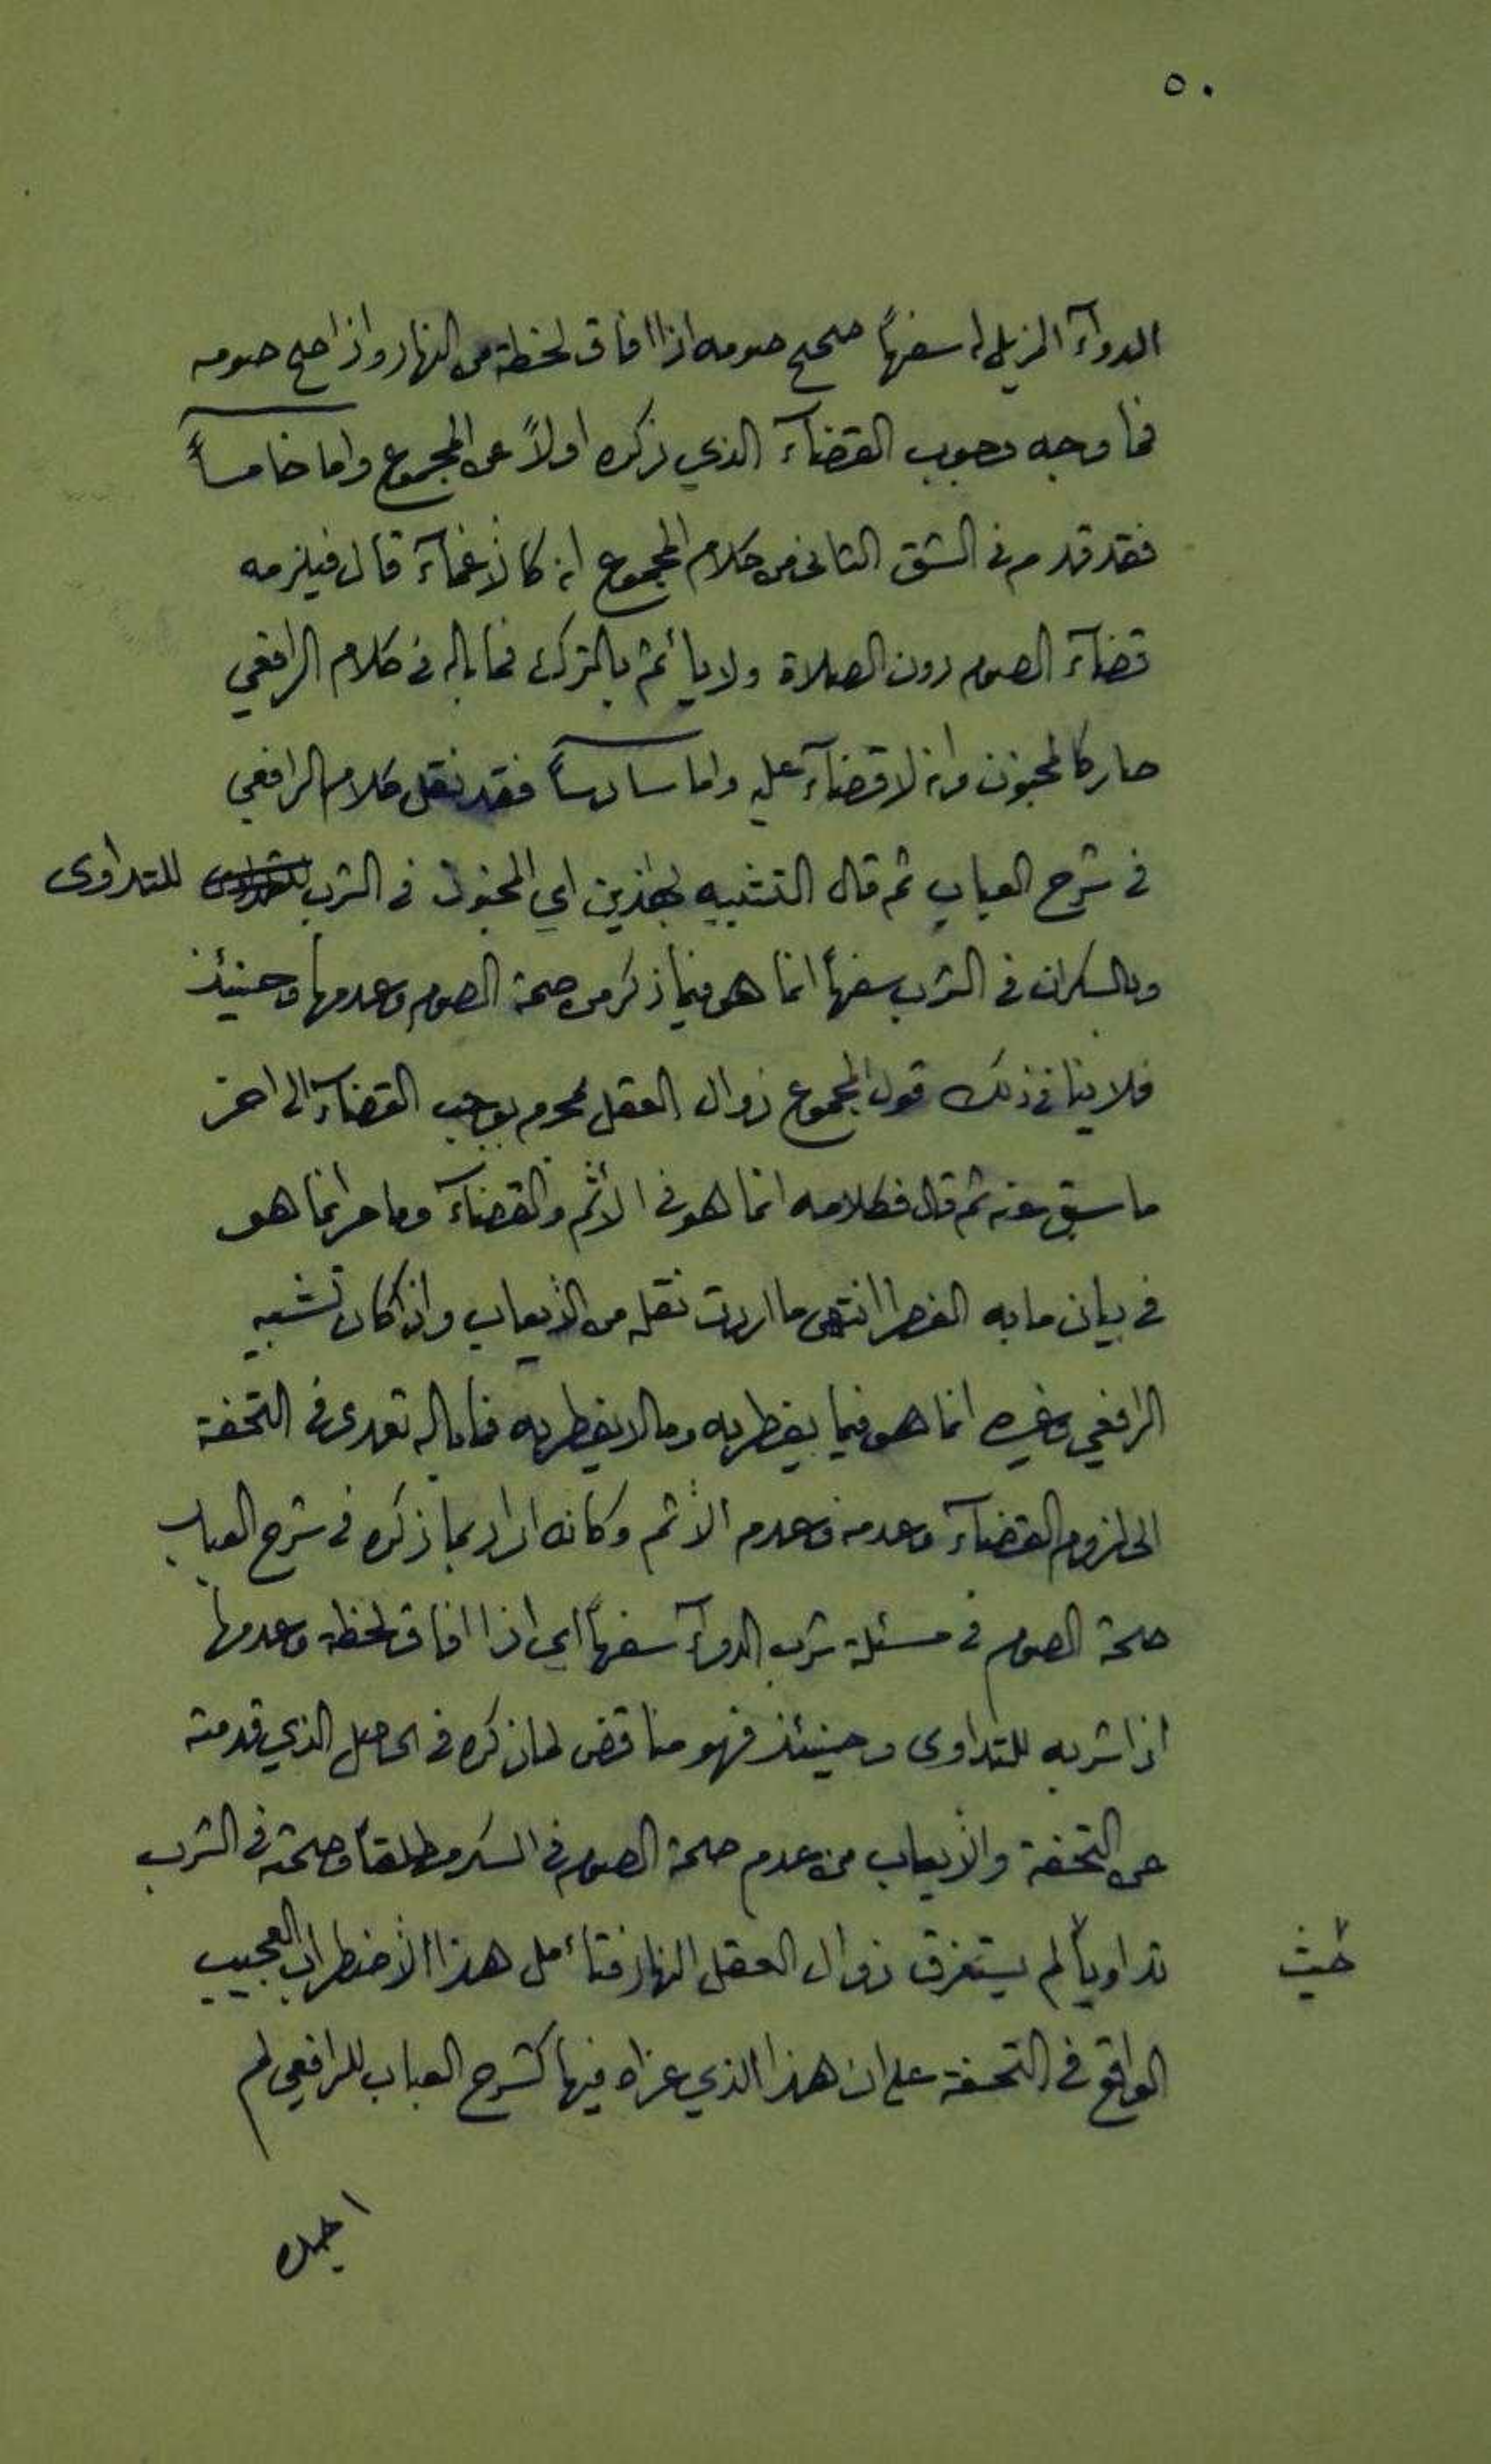 ٥٠
الدوآء المزيل له سفهاً صحيح صومه اذا افاق لحظة من النهار واذا صح صومه
فما وجه وجوب القضآء الذي ذكره اولاً عن المجموع واما خامساً
فقد قدم في الشق الثاني من كلام المجموع انه كالاغمآء قال فيلزمه
قضآء الصوم دون الصلاة ولا يأثم بالترك فما باله في كلام الرافعي
صار كالمجنون وانه لا قضآء عليه واما سادساً فقد نقل كلام الرافعي
في شرح العباب ثم قال التشبيه بهذين اي المجنون في الشرب للتداوى
وبالسكران في الشرب سفهاً انما هو فيما ذكر من صحة الصوم وعدمها وحينئذ
فلا ينافي ذلك قول المجموع زوال العقل بمحرم يوجب القضآء الى اخر
ما سبق عنه ثم قال فكلامه انما هو في الأثم والقضآء وما مر انما هو
في بيان ما به الفطر انتهى ما اردت نقله من الأيعاب واذا كان تشبيه
الرافعي وغيره انما هو فيما يفطر به وما لا يفطر به فما باله تعدى في التحفة
الى لزوم القضآء وعدمه وعدم الأثم وكانه اراد بما ذكره في شرح العباب
صحة الصوم في مسئلة شرب الدوآء سفهاً اي اذا افاق لحظة وعدمها
اذا شربه للتداوى وحينئذ فهو مناقض لما ذكره في الحاصل الذي قدمته
عن التحفة والأيعاب من عدم صحة الصوم في السكر مطلقاً وصحته في الشرب
تداوياً لم يستغرق زوال العقل النهار فتأمل هذا الأضطراب العجيب
حيث
الواقع في التحفة على ان هذا الذي عزاه فيها كشرح العباب للرافعي لم
اجده